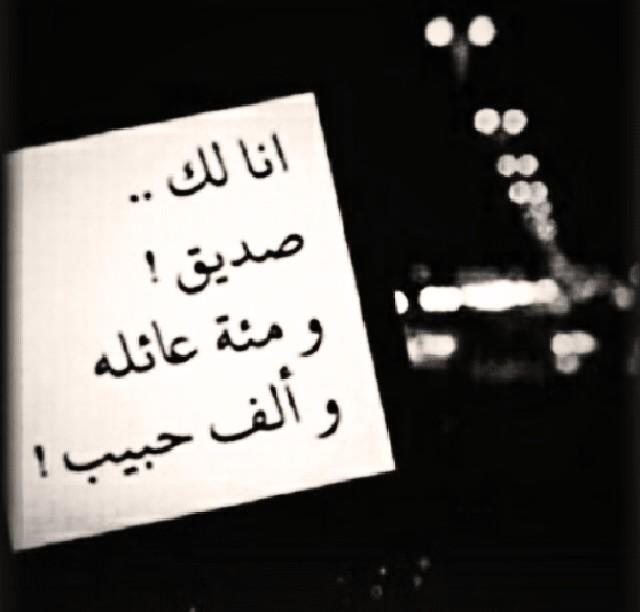 انا لك ..
صديق !
و مئة عائله
و ألف حبيب !